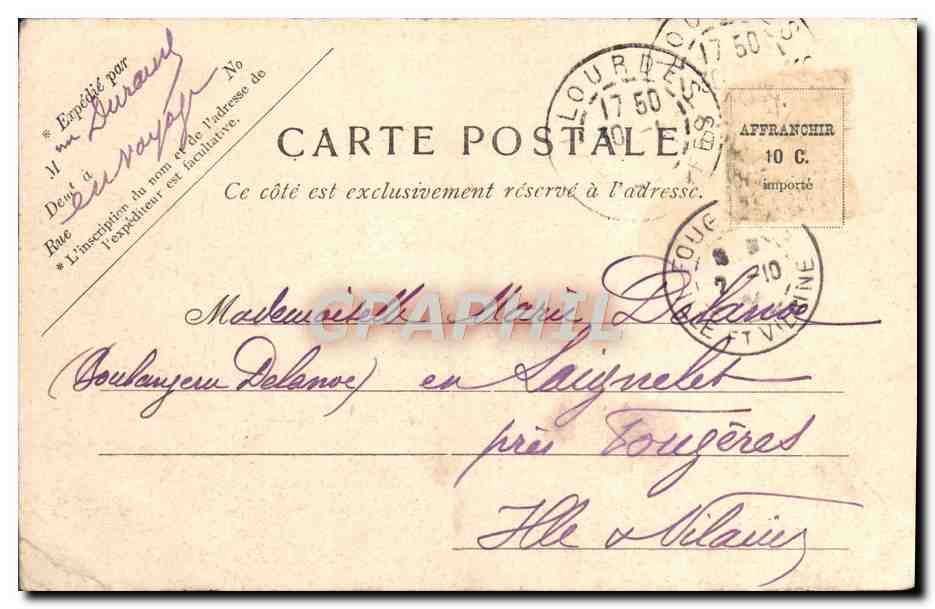 * Expédié par
M
Demt à
en voyage
Rue No
* L'inscription du nom et de l'adresse de
l'expéditeur est facultative.
CARTE POSTALE
Ce côté est exclusivement réservé à l'adresse.
LOURDES
17 50
17 50
AFFRANCHIR
10 C.
importé
FOUG
2 -10
ILLE ET VILAINE
CPAPHIL
Mademoiselle Marie Delanoe
(Boulangerie Delanoe) en Laignelet
près Fougères
Ille & Vilaine